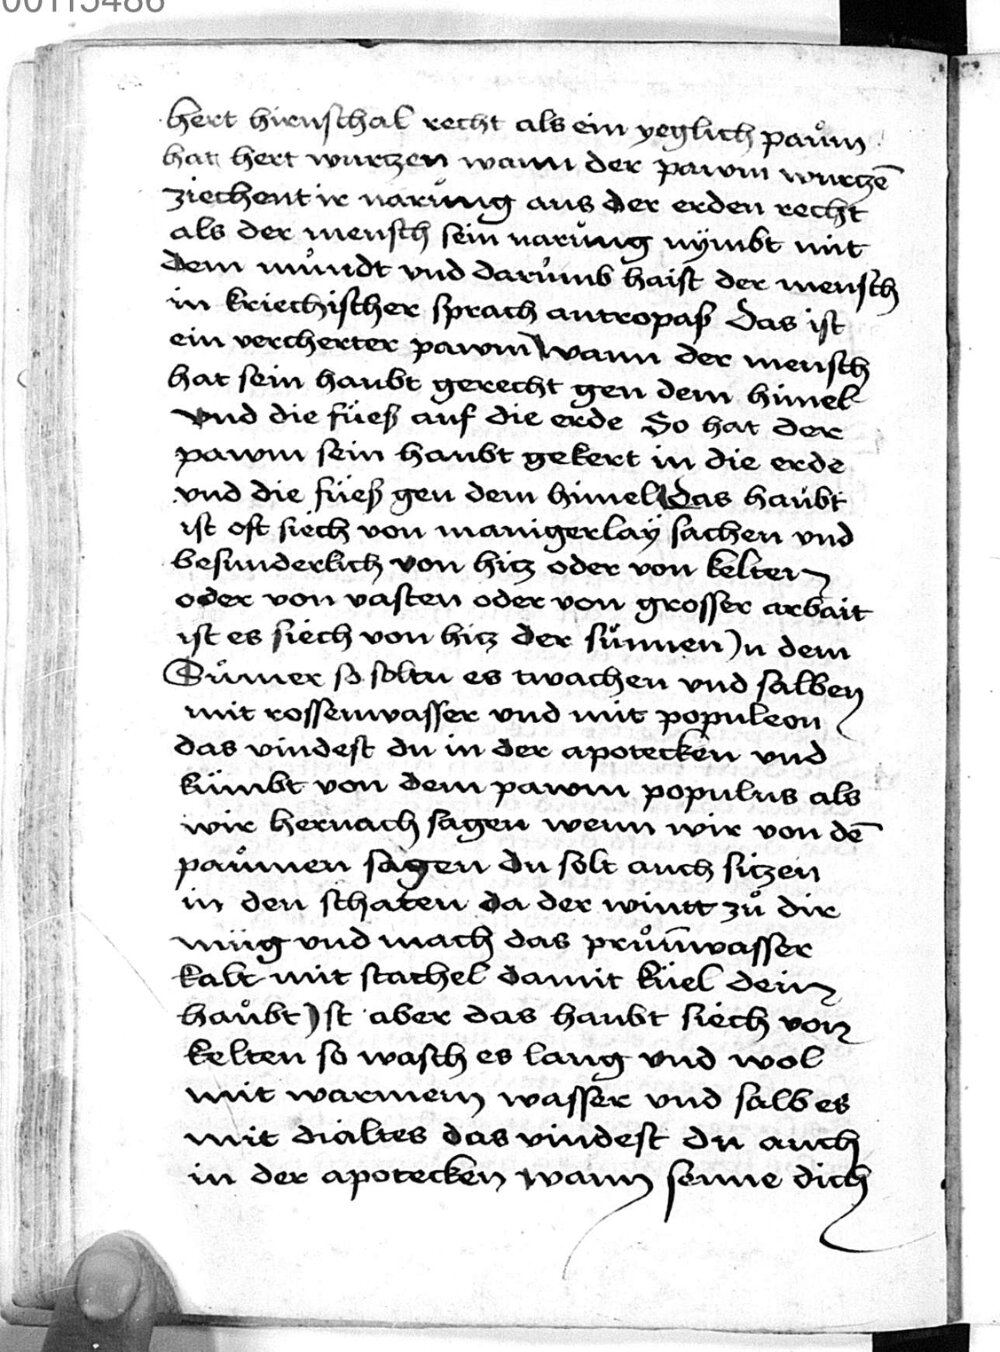 00115486
hert hirnschal recht als ein yeglich paům
hat hert wurtzen wann der pawm wurtzē
ziechent ir narůng aus der erden recht
als der mensch sein narůng nÿmbt mit
dem můndt vnd darůmb haist der mensch
in kriechischer sprach antropaß Das ist
ein vercherter pawm Wann der mensch
hat sein haubt gerecht gen dem himel
vnd die füeß auf die erde So hat der
pawm sein haubt gekert in die erde
vnd die füeß gen dem himel Das haůbt
ist oft siech von manigerlaÿ sachen vnd
besunderlich von hitz oder von kelten
oder von vasten oder von grosser arbait
ist es siech von hitz der sůnnen In dem
Sůmer so soltu es twachen vnd salben
mit rossenwasser vnd mit populeon
das vindest du in der apotecken vnd
kümbt von dem pawm populus als
wir hernach sagen wenn wir von dē
paůmen sagen du solt auch sitzen
in den schaten da der wintt zů dir
müg vnd mach das průn̄wasser
kalt mit stachel damit küel dein
haůbt Ist aber das haubt siech von
kelten so wasch es lang vnd wol
mit warmem wasser vnd salb es
mit dialtes das vindest du auch
in der apotecken wann senne dich